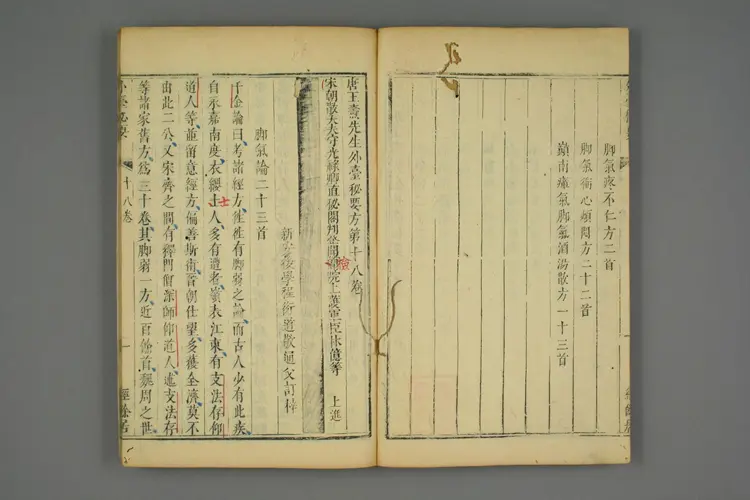 脚氣疼不仁方二首
脚氣衝心煩悶方二十二首
嶺南瘴氣脚氣酒湯散方一十三首
唐王燾先生外臺秘要方第十八卷
宋朝散大夫守光祿卿直秘閣判登聞檢院上護軍臣林億等 上進
新安後學程衍道敬通父訂梓
脚氣論二十三首
千金論曰考諸經方往往有脚弱之論而古人少有此疾
自永嘉南度衣纓士人多有遭者嶺表江東有支法存仰
道人等並留意經方偏善斯術晉朝仕望多獲全濟莫不
由此二公又宋齊之間有釋門深師師仰道人述支法存
等諸家舊方爲三十卷其脚弱一方近百餘首魏周之世
外臺秘要
十八卷
一
經餘居